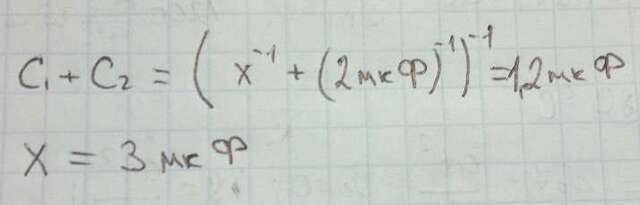 C₁ + C₂ = (x⁻¹ + (2 мкФ)⁻¹)⁻¹ = 1,2 мкФ
X = 3 мкФ